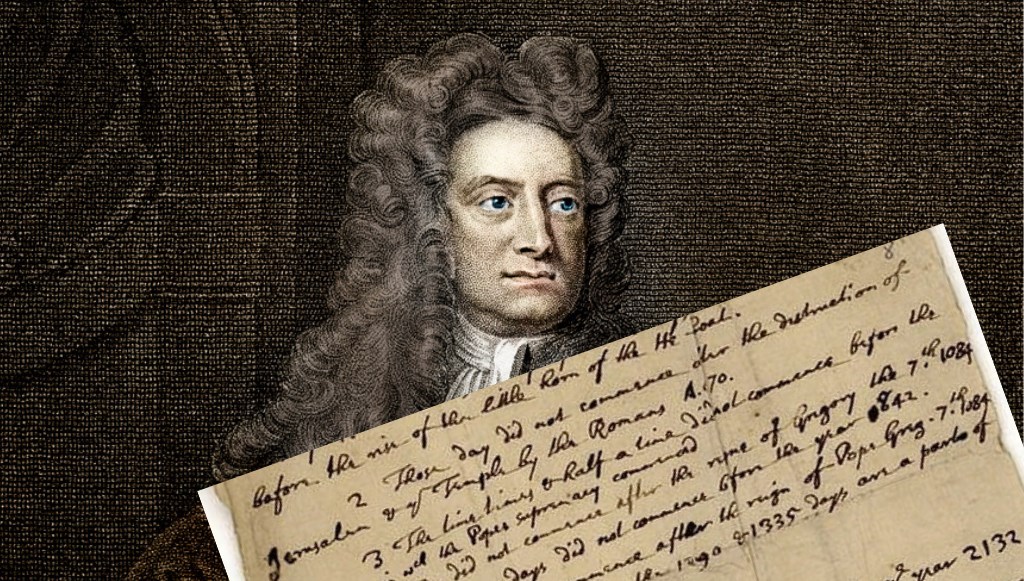 8
before the rise of the little horn of the He Goat.
2 Those day did not commence after the destruction of
Jerusalem & ye Temple by the Romans A. 70.
3 The time times & half a time did not commence before the
year 800 in wch the Popes supremacy commenced
did not commence after the reigne of Gregory the 7th. 1084
days did not commence before the year 842.
commence after the reign of Pope Greg. 7th. 1084
the 1290 & 1335 days are a parts of
year 2132